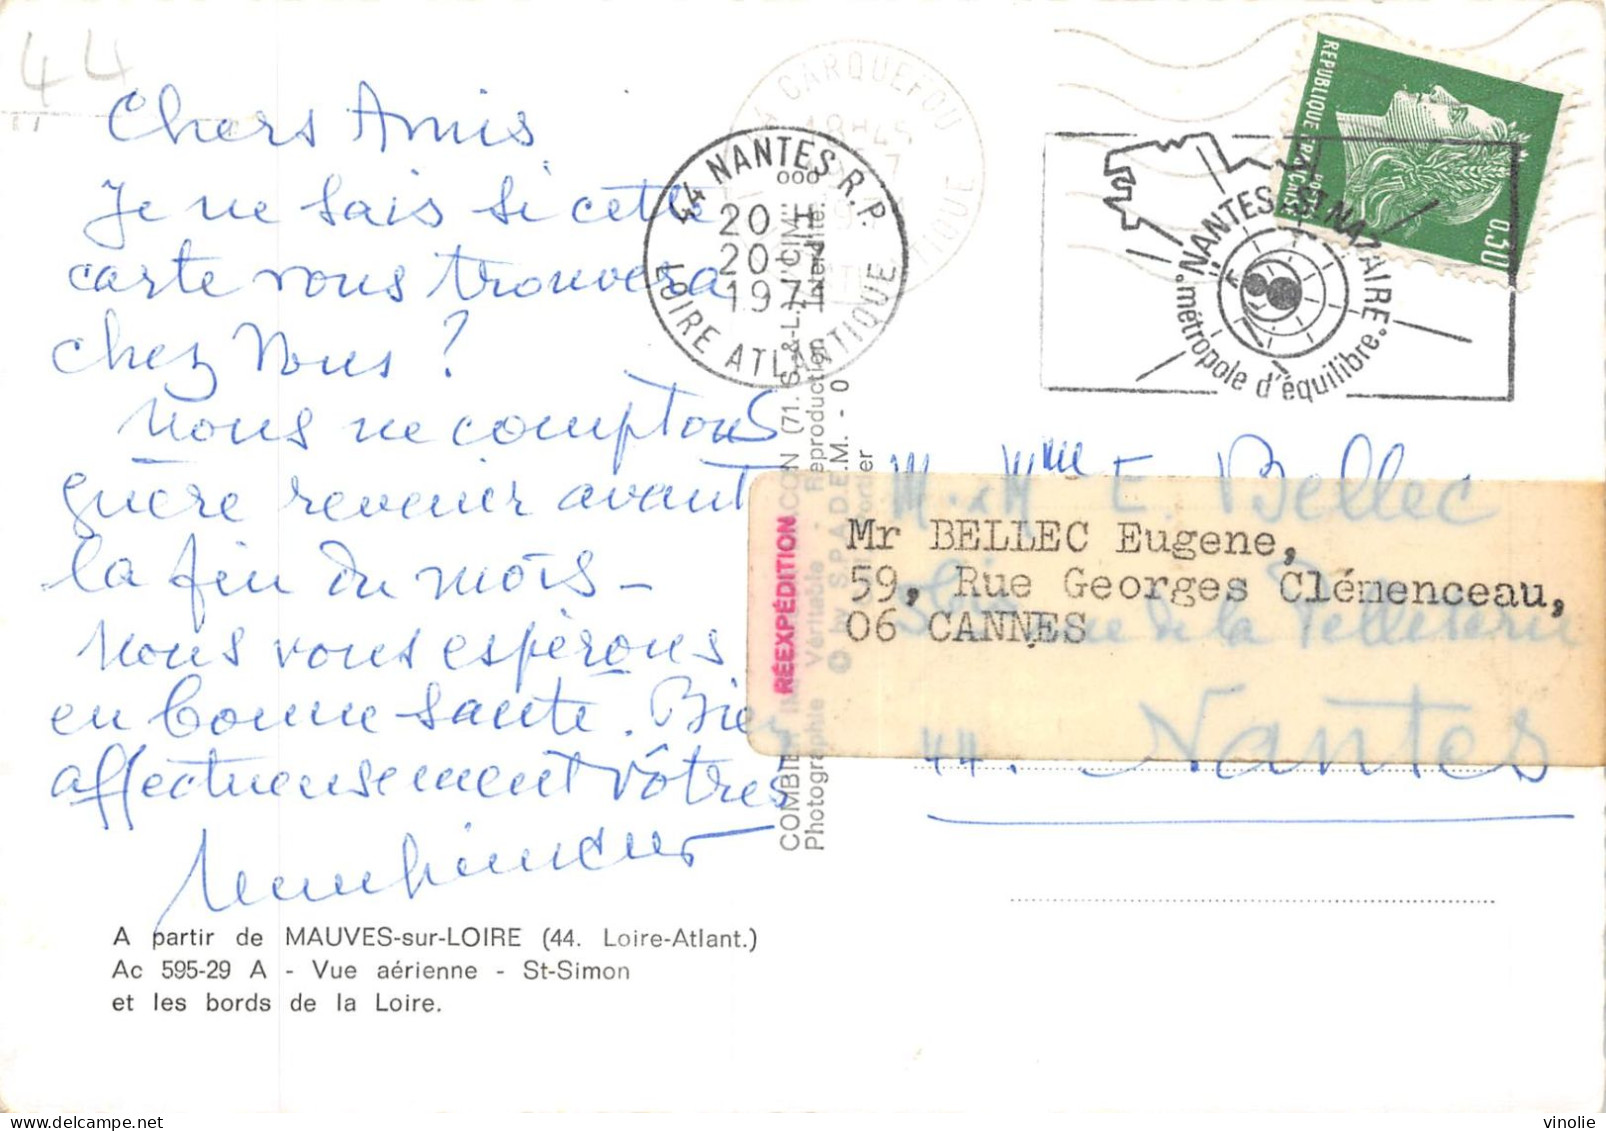 44
Chers Amis
Je ne sais si cette
carte vous trouvera
chez Vous ?
Nous ne comptons
guère revenir avant
la fin du mois -
Nous vous espérons
en bonne santé. Bien
affectueusement vôtres
A partir de MAUVES-sur-LOIRE (44. Loire-Atlant.)
Ac 595-29 A - Vue aérienne - St-Simon
et les bords de la Loire.
CARQUEFOU
18H45
44 NANTES R.P.
20 H
1971
LOIRE ATLANTIQUE
NANTES ST NAZAIRE
métropole d'équilibre
REPUBLIQUE FRANCAISE
POSTES
0,30
COMBIER IMP. MACON (71. S.-&-L.) "CIM"
Photographie Véritable - Reproduction Interdite.
© by S.P.A.D.E.M. - 0
RÉEXPÉDITION
M. & Mme E. Bellec
rue de la Pelleterie
44. Nantes
Mr BELLEC Eugene,
59, Rue Georges Clémenceau,
06 CANNES
vinolie